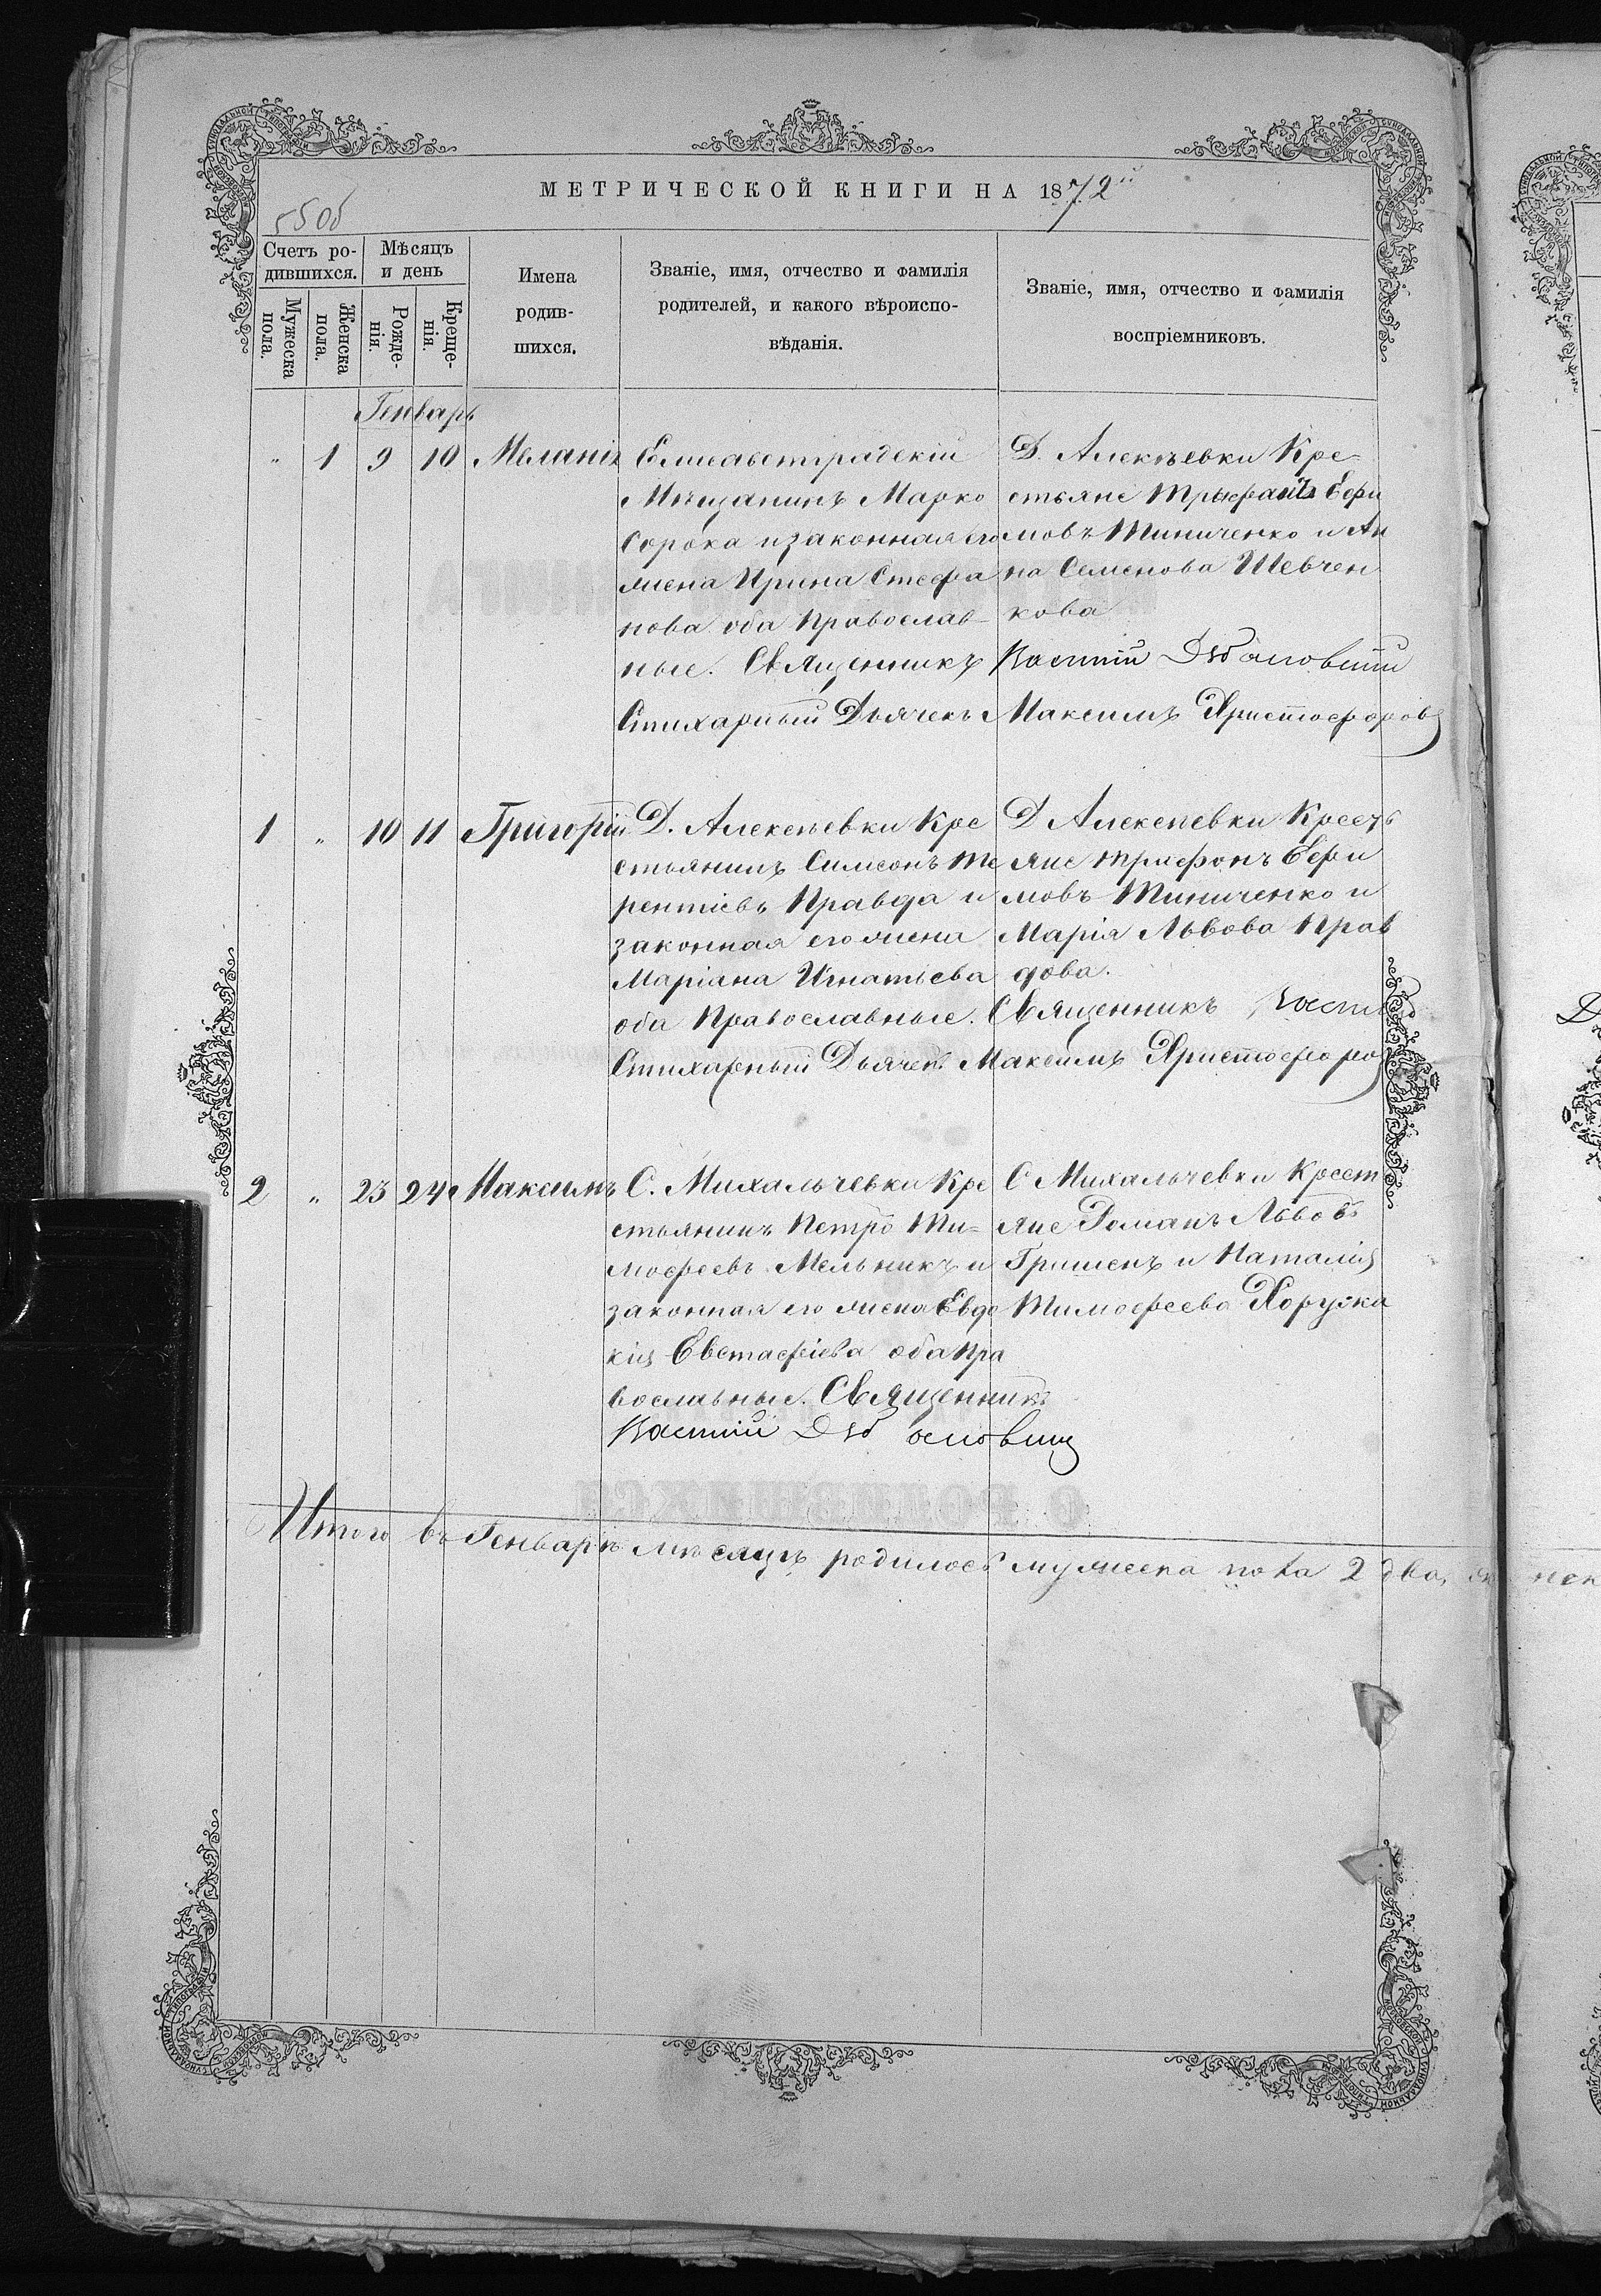 МЕТРИЧЕСКОЙ КНИГИ НА 1872й
550б
Счетъ ро-
дившихся.
Мѣсяцъ
и день
Мужеска
пола.
Женска
пола.
Рожде-
нія.
Креще-
нія.
Имена
родив-
шихся.
Званіе, имя, отчество и фамилія
родителей, и какого вѣроиспо-
вѣданія.
Званіе, имя, отчество и фамилія
воспріемниковъ.
Генварь
" 1 9 10 Меланія
Елисаветградскій
Мѣщанинъ Марко
Сорока и законная его
жена Ирина Стефа
нова оба Православ-
ные. Священникъ
Д. Алексѣевки Кре-
стьяне Трифанъ Ефи
мовъ Тиниченко и Ан
на Семенова Шевчен
кова
Стихарный Дьячекъ Максимъ Христофоровъ
1 " 10 11 Григорій
Д. Алексѣевки Кре
стьянинъ Симеонъ Те
рентіевъ Правда и
законная его жена
Маріана Игнатьева
оба Православные. Священникъ
Д Алексѣевки Кресть
яне Трифонъ Ефи
мовъ Тиниченко и
Марія Львова Прав
дова.
Стихарный Дьячекъ Максимъ Христофоро
2 " 23 24 Максимъ
С. Михальчевки Кре
стьянинъ Петро Ти-
мофеевъ Мельникъ и
законная его жена Евдо
кія Евстафіева оба Пра
вославные. Священникъ
С Михальчевки Крест
яне Романъ Львовъ
Гришенъ и Наталія
Тимофеева Хоружа
Итого въ Генварѣ мѣсяцѣ родилось мужеска пола 2 два,